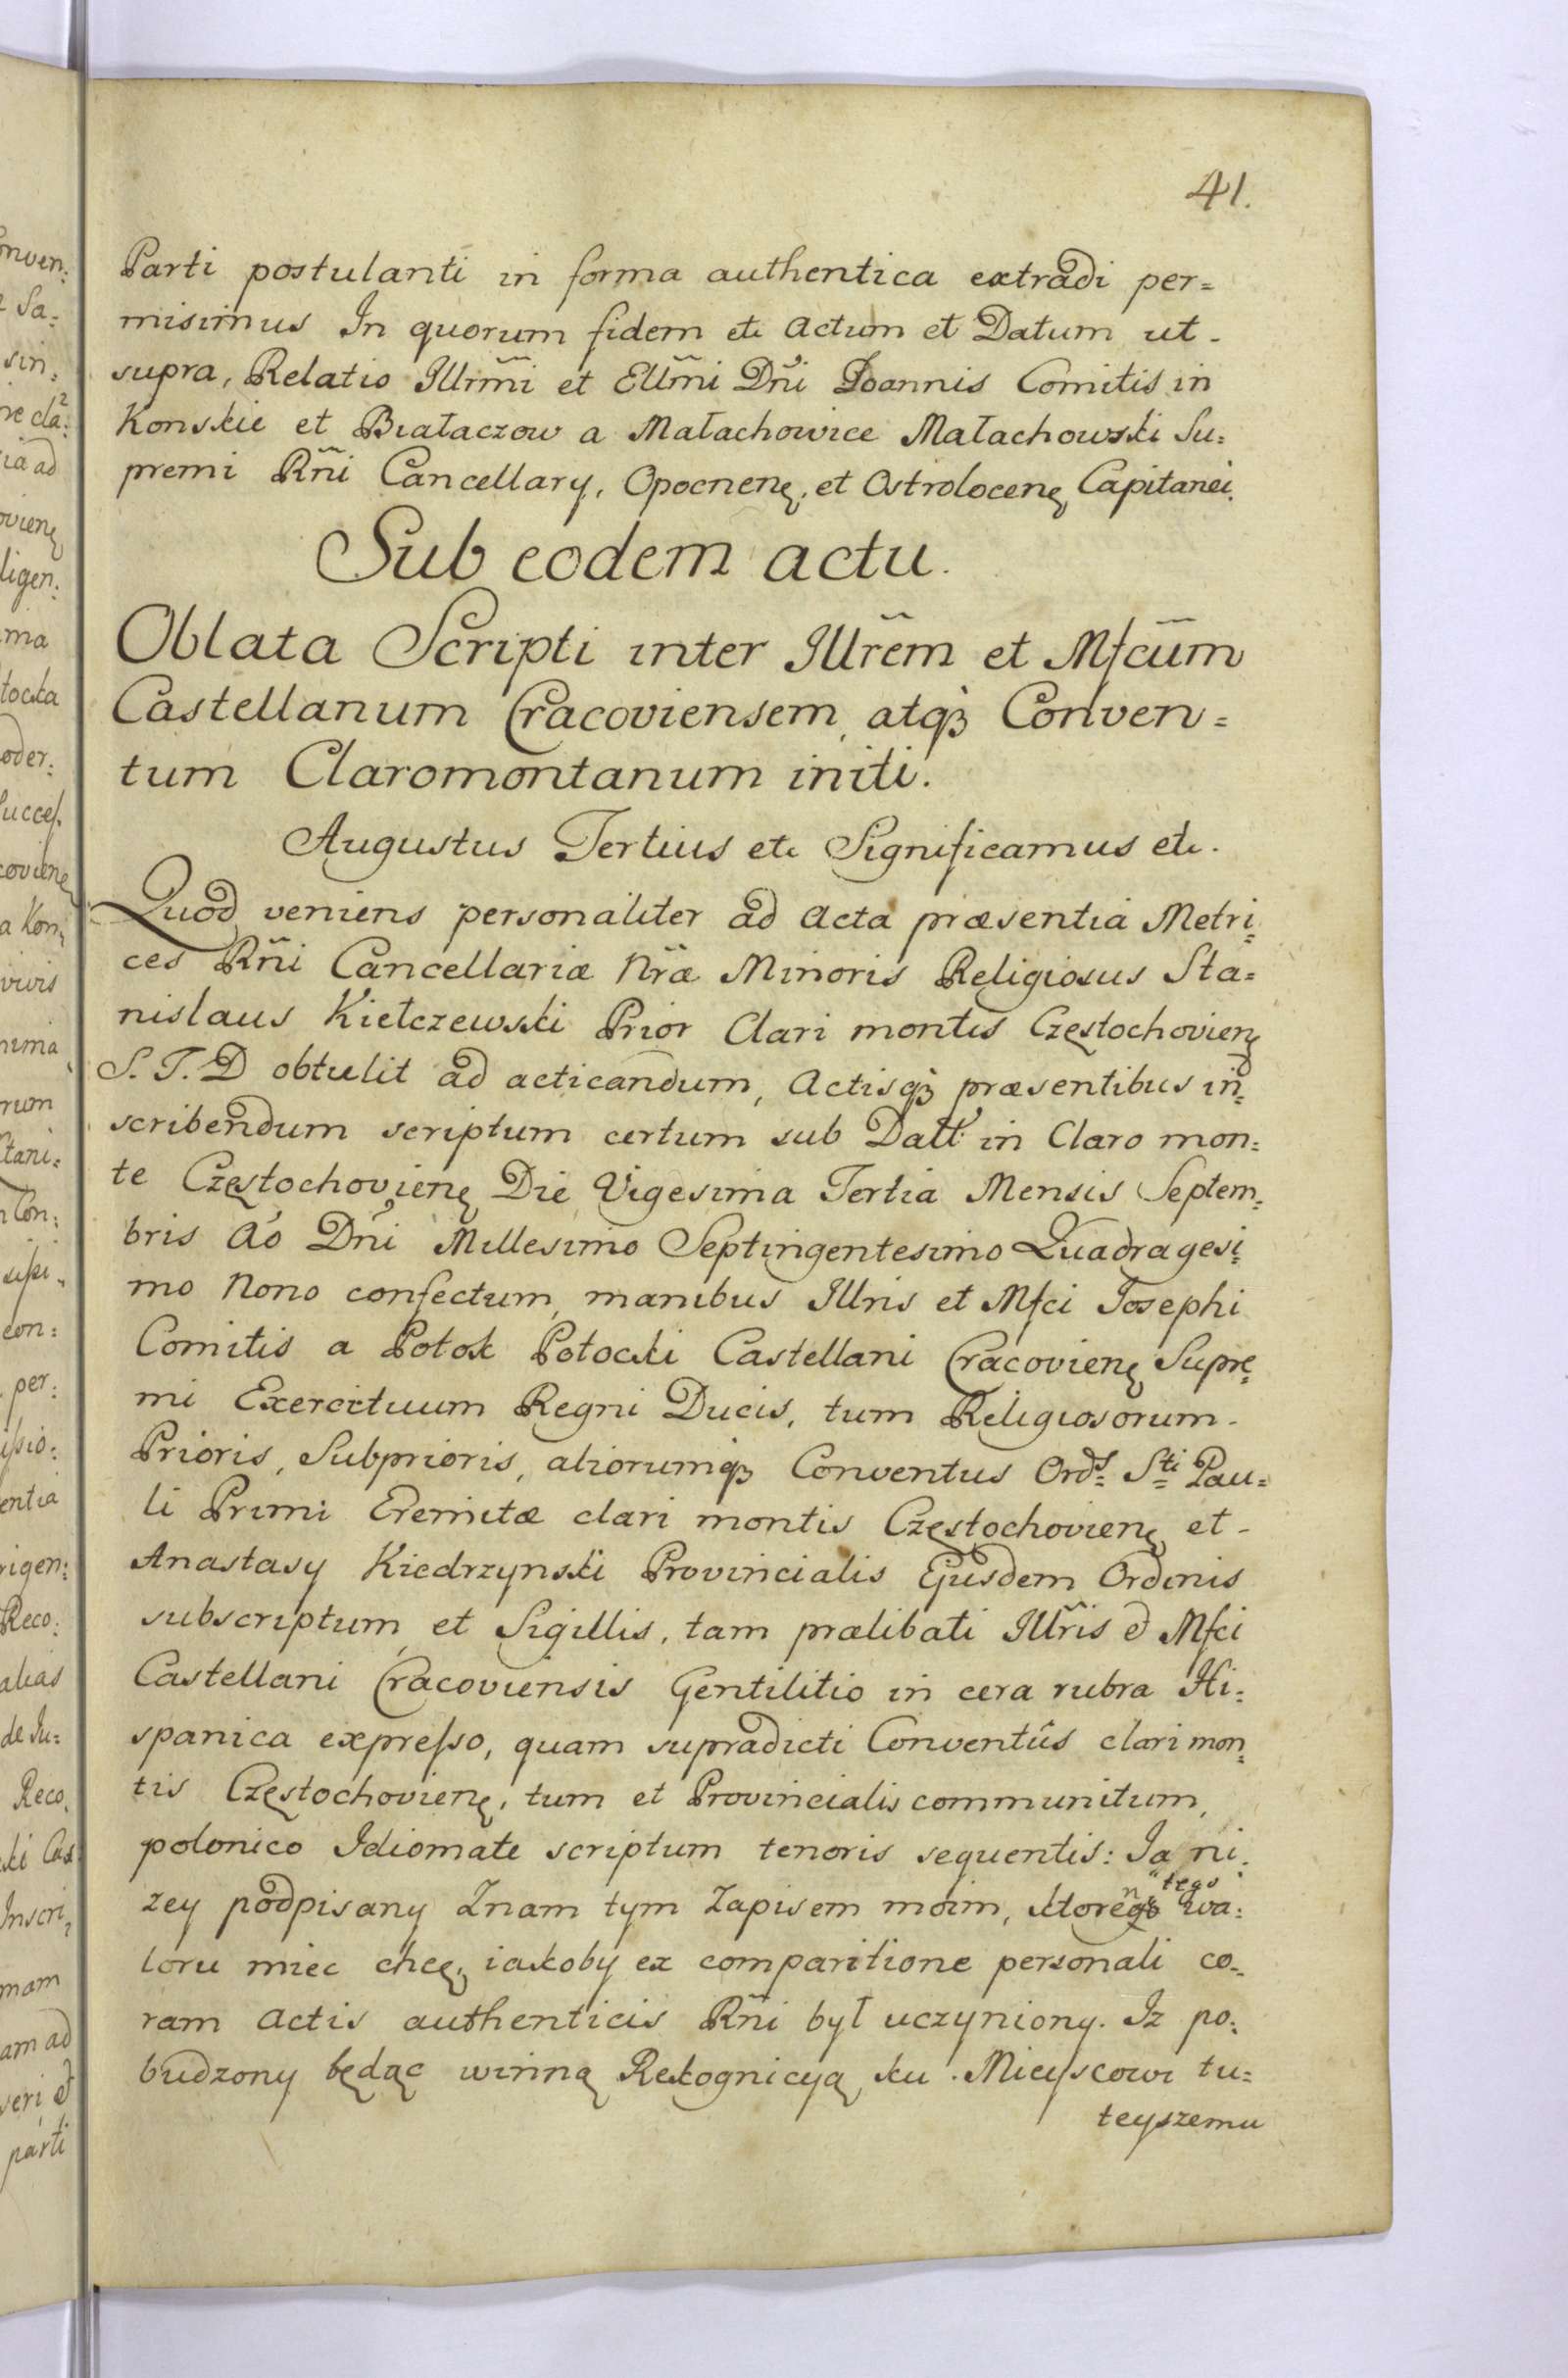 41.
Parti postulanti in forma authentica extradi per=
misimus In quorum fidem etc Actum et Datum ut-
supra, Relatio Illrm̃i et Ellm̃i Dñi Ioannis Comitis in
Konskie et Białaczow a Małachowice Małachowski Su=
premi Rñi Cancellary, Opocnenę, et Ostrolocenę Capitanei.
Sub eodem actu.
Oblata Scripti inter Illrẽm et Mfcũm
Castellanum Cracoviensem, atqꝫ Conven=
tum Claromontanum initi.
Augustus Tertius etc Significamus etc.
Quod veniens personaliter ad Acta præsentia Metri=
ces Rñi Cancellariæ Nræ Minoris Religiosus Sta=
nislaus Kiełczewski Prior Clari montis Częstochovienę
S. T. D obtulit ad acticandum, Actisqꝫ præsentibus in=
scribendum scriptum certum sub Datt in Claro mon=
te Częstochovienę Die Vigesima Tertia Mensis Septem=
bris Ao Dñi Millesimo Septingentesimo Quadragesi=
mo Nono confectum, manibus Illris et Mfci Josephi
Comitis a Potok Potocki Castellani Cracovienę Supre=
mi Exercituum Regni Ducis, tum Religiosorum-
Prioris, Subprioris, aliorumqꝫ Conventus Ords= Sti= Pau=
li Primi Eremitæ clari montis Częstochovienę et-
Anastasy Kiedrzynski Provincialis Ejusdem Ordinis
subscriptum, et Sigillis, tam prælibati Illris et Mfci
Castellani Cracoviensis Gentilitio in cera rubra Hi=
spanica expresso, quam supradicti Conventûs clari mon=
tis Częstochovienę, tum et Provincialis communitum,
polonico Idiomate scriptum tenoris sequentis: Ja ni=
zey podpisany Znam tym Zapisem moim, ktorego tego wa=
loru miec chcę, iakoby ex comparitione personali co=
ram Actis authenticis Rñi był uczyniony. Iz po=
budzony będąc winną Rekognicyą ku Mieyscowi tu=
teyszemu